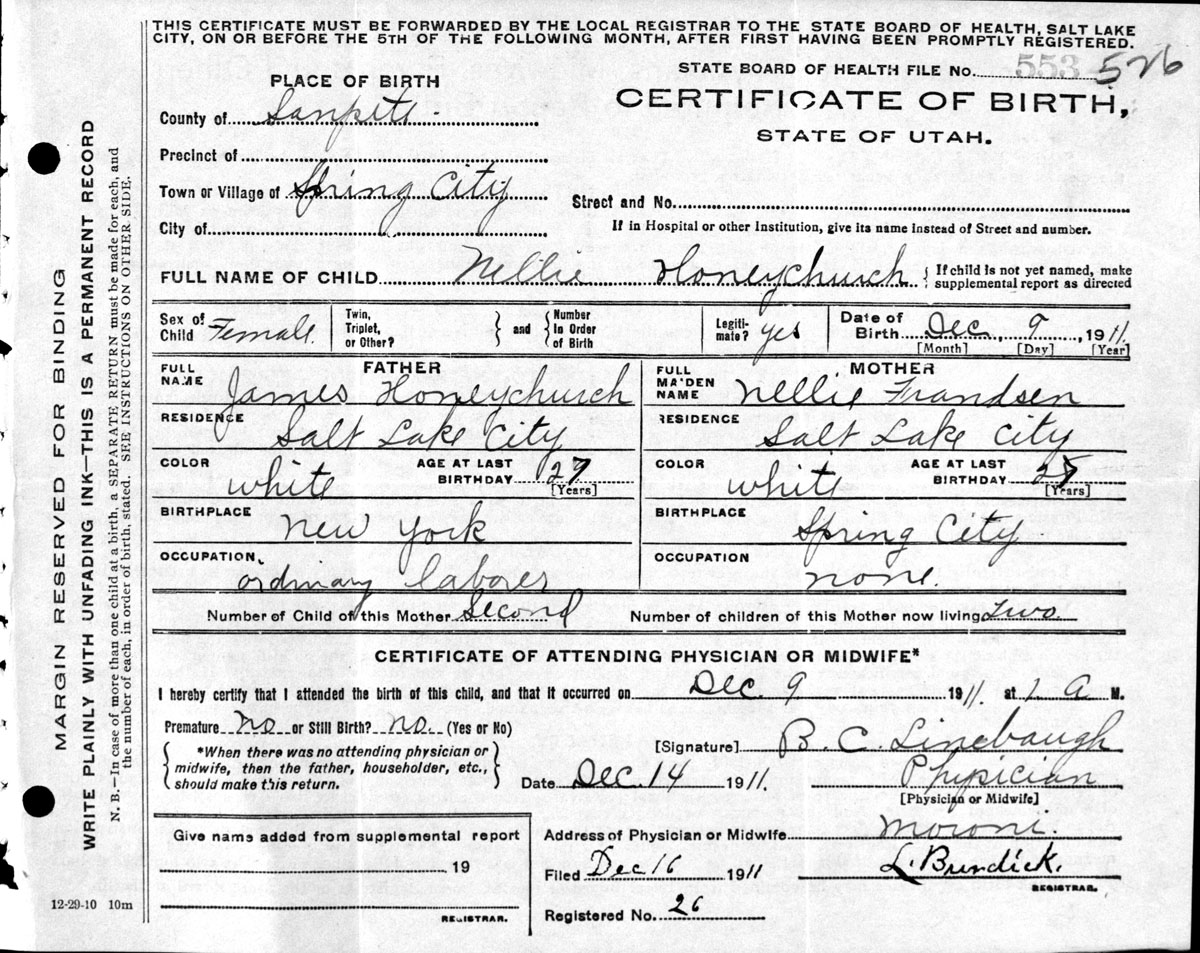 THIS CERTIFICATE MUST BE FORWARDED BY THE LOCAL REGISTRAR TO THE STATE BOARD OF HEALTH, SALT LAKE
CITY, ON OR BEFORE THE 5TH OF THE FOLLOWING MONTH, AFTER FIRST HAVING BEEN PROMPTLY REGISTERED.
STATE BOARD OF HEALTH FILE No. 553 526
PLACE OF BIRTH
CERTIFICATE OF BIRTH,
STATE OF UTAH.
County of Sanpete
Precinct of
Town or Village of Spring City
Street and No.
City of
If in Hospital or other Institution, give its name instead of Street and number.
FULL NAME OF CHILD Nellie Honeychurch { If child is not yet named, make
supplemental report as directed
Sex of
Child Female
Twin,
Triplet,
or Other? } and { Number
in Order
of Birth
Legiti-
mate? yes
Date of
Birth Dec. 9, 1911.
[Month] [Day] [Year]
FATHER
FULL
NAME James Honeychurch
RESIDENCE
Salt Lake City
COLOR
white
AGE AT LAST
BIRTHDAY 27
[Years]
BIRTHPLACE
New York
OCCUPATION
ordinary laborer
MOTHER
FULL
MAIDEN
NAME Nellie Frandsen
RESIDENCE
Salt Lake City
COLOR
white
AGE AT LAST
BIRTHDAY 25
[Years]
BIRTHPLACE
Spring City
OCCUPATION
none.
Number of Child of this Mother Second Number of children of this Mother now living Two.
CERTIFICATE OF ATTENDING PHYSICIAN OR MIDWIFE*
I hereby certify that I attended the birth of this child, and that it occurred on Dec. 9 1911. at 1 A M.
Premature no or Still Birth? no. (Yes or No)
{ *When there was no attending physician or
midwife, then the father, householder, etc.,
should make this return. }
[Signature] B. C. Linebaugh
Date Dec. 14 1911. Physician
[Physician or Midwife]
Give name added from supplemental report
19
REGISTRAR.
Address of Physician or Midwife Moroni.
Filed Dec 16 1911 L. Burdick.
REGISTRAR.
Registered No. 26
12-29-10 10m
MARGIN RESERVED FOR BINDING
WRITE PLAINLY WITH UNFADING INK—THIS IS A PERMANENT RECORD
N. B.—In case of more than one child at a birth, a SEPARATE RETURN must be made for each, and
the number of each, in order of birth, stated. SEE INSTRUCTIONS ON OTHER SIDE.